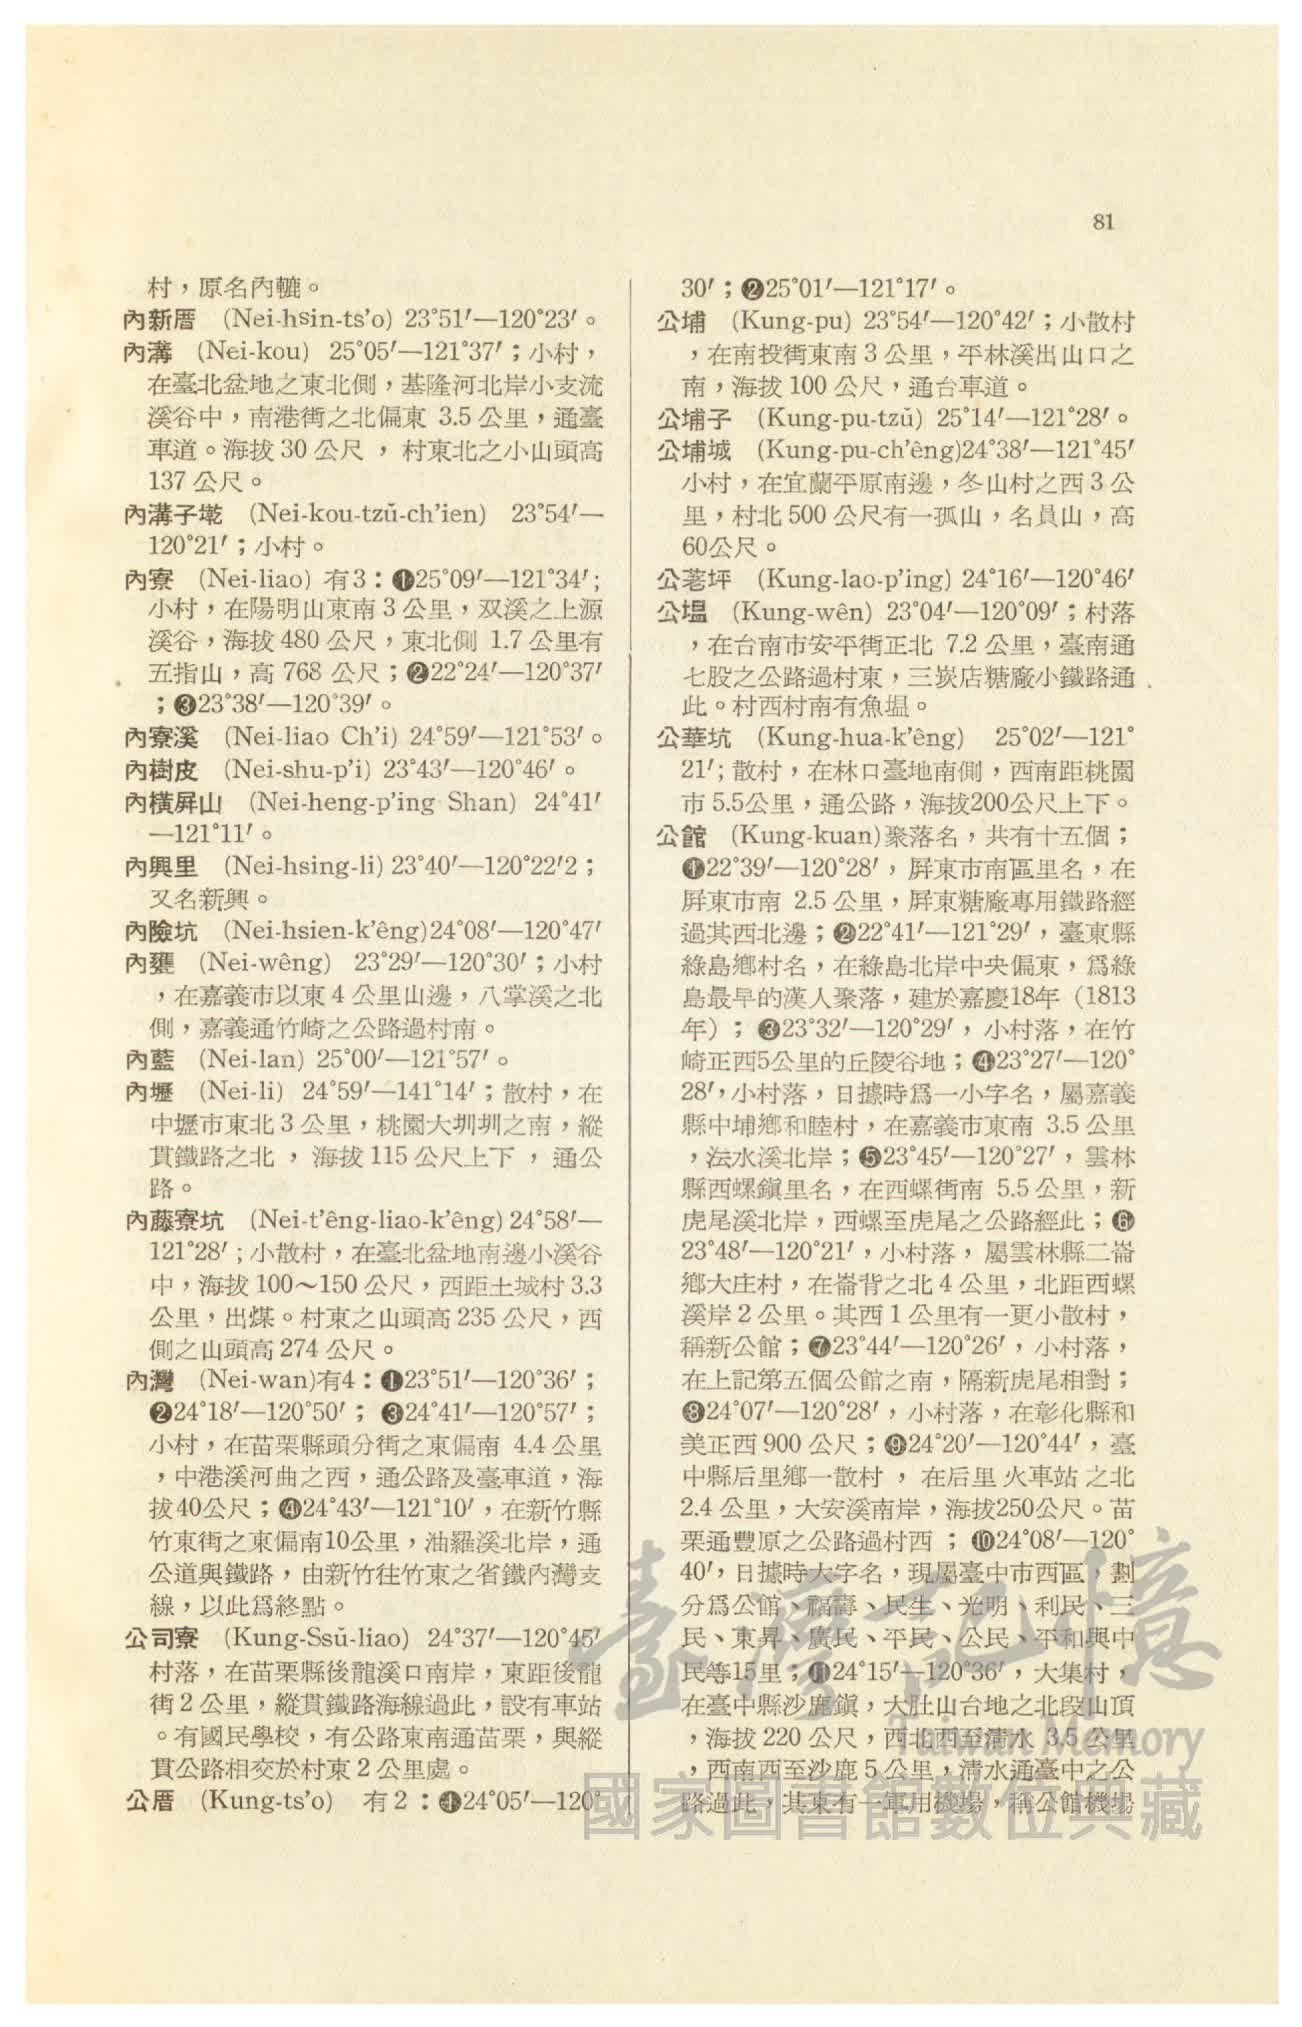 81
村，原名內轆。
內新厝　(Nei-hsin-ts’o) 23°51′—120°23′。
內溝　(Nei-kou)　25°05′—121°37′；小村，
在臺北盆地之東北側，基隆河北岸小支流
溪谷中，南港街之北偏東 3.5 公里，通臺
車道。海拔 30 公尺 ， 村東北之小山頭高
137 公尺。
內溝子墘　(Nei-kou-tzŭ-ch’ien)　23°54′—
120°21′；小村。
內寮　(Nei-liao) 有3：❶25°09′—121°34′;
小村，在陽明山東南 3 公里，双溪之上源
溪谷，海拔 480 公尺，東北側 1.7 公里有
五指山，高 768 公尺；❷22°24′—120°37′
；❸23°38′—120°39′。
內寮溪　(Nei-liao Ch’i) 24°59′—121°53′。
內樹皮　(Nei-shu-p’i) 23°43′—120°46′。
內橫屏山　(Nei-heng-p’ing Shan)　24°41′
—121°11′。
內興里　(Nei-hsing-li) 23°40′—120°22′2；
又名新興。
內險坑　(Nei-hsien-k’êng)24°08′—120°47′
內甕　(Nei-wêng)　23°29′—120°30′；小村
，在嘉義市以東 4 公里山邊，八掌溪之北
側，嘉義通竹崎之公路過村南。
內藍　(Nei-lan) 25°00′—121°57′。
內壢　(Nei-li)　24°59′—141°14′；散村，在
中壢市東北 3 公里，桃園大圳圳之南，縱
貫鐵路之北 ， 海拔 115 公尺上下 ， 通公
路。
內藤寮坑　(Nei-t’êng-liao-k’êng) 24°58′—
121°28′；小散村，在臺北盆地南邊小溪谷
中，海拔 100～150 公尺，西距土城村 3.3
公里，出煤。村東之山頭高 235 公尺，西
側之山頭高 274 公尺。
內灣　(Nei-wan)有4：❶23°51′—120°36′；
❷24°18′—120°50′； ❸24°41′—120°57′；
小村，在苗栗縣頭分街之東偏南 4.4 公里
，中港溪河曲之西，通公路及臺車道，海
拔40公尺；❹24°43′—121°10′，在新竹縣
竹東街之東偏南10公里，油羅溪北岸，通
公道與鐵路，由新竹往竹東之省鐵內灣支
線，以此爲終點。
公司寮　(Kung-Ssŭ-liao)　24°37′—120°45′
村落，在苗栗縣後龍溪口南岸，東距後龍
街 2 公里，縱貫鐵路海線過此，設有車站
。有國民學校，有公路東南通苗栗，與縱
貫公路相交於村東 2 公里處。
公厝　(Kung-ts’o)　有 2 ：❶24°05′—120°
30′；❷25°01′—121°17′。
公埔　(Kung-pu) 23°54′—120°42′；小散村
，在南投街東南 3 公里，平林溪出山口之
南，海拔 100 公尺，通台車道。
公埔子　(Kung-pu-tzŭ) 25°14′—121°28′。
公埔城　(Kung-pu-ch’êng)24°38′—121°45′
小村，在宜蘭平原南邊，冬山村之西 3 公
里，村北 500 公尺有一孤山，名員山，高
60公尺。
公荖坪　(Kung-lao-p’ing) 24°16′—120°46′
公塭　(Kung-wên) 23°04′—120°09′；村落
，在台南市安平街正北 7.2 公里，臺南通
七股之公路過村東，三崁店糖廠小鐵路通
此。村西村南有魚塭。
公華坑　(Kung-hua-k’êng)　25°02′—121°
21′; 散村，在林口臺地南側，西南距桃園
市 5.5公里，通公路，海拔200公尺上下。
公館　(Kung-kuan)聚落名，共有十五個；
❶22°39′—120°28′，屏東市南區里名，在
屏東市南 2.5 公里，屏東糖廠專用鐵路經
過其西北邊；❷22°41′—121°29′，臺東縣
綠島鄉村名，在綠島北岸中央偏東，爲綠
島最早的漢人聚落，建於嘉慶18年（1813
年）； ❸23°32′—120°29′，小村落，在竹
崎正西5公里的丘陵谷地；❹23°27′—120°
28′，小村落，日據時爲一小字名，屬嘉義
縣中埔鄉和睦村，在嘉義市東南 3.5 公里
，法水溪北岸；❺23°45′—120°27′，雲林
縣西螺鎭里名，在西螺街南 5.5 公里，新
虎尾溪北岸，西螺至虎尾之公路經此；❻
23°48′—120°21′，小村落，屬雲林縣二崙
鄉大庄村，在崙背之北 4 公里，北距西螺
溪岸 2 公里。其西 1 公里有一更小散村，
稱新公館；❼23°44′—120°26′，小村落，
在上記第五個公館之南，隔新虎尾相對；
❽24°07′—120°28′，小村落，在彰化縣和
美正西 900 公尺；❾24°20′—120°44′，臺
中縣后里鄉一散村 ， 在后里 火車站 之北
2.4 公里，大安溪南岸，海拔250公尺。苗
栗通豐原之公路過村西 ； ❿24°08′—120°
40′，日據時大字名，現屬臺中市西區，劃
分爲公館、福壽、民生、光明、利民、三
民、東昇、廣民、平民、公民、平和與中
民等15里；⓫24°15′—120°36′，大集村，
在臺中縣沙鹿鎭，大肚山台地之北段山頂
，海拔 220 公尺，西北西至清水 3.5 公里
，西南西至沙鹿 5 公里，清水通臺中之公
路過此，其東有一軍用機場，稱公館機場
臺灣記憶
Taiwan Memory
國家圖書館數位典藏